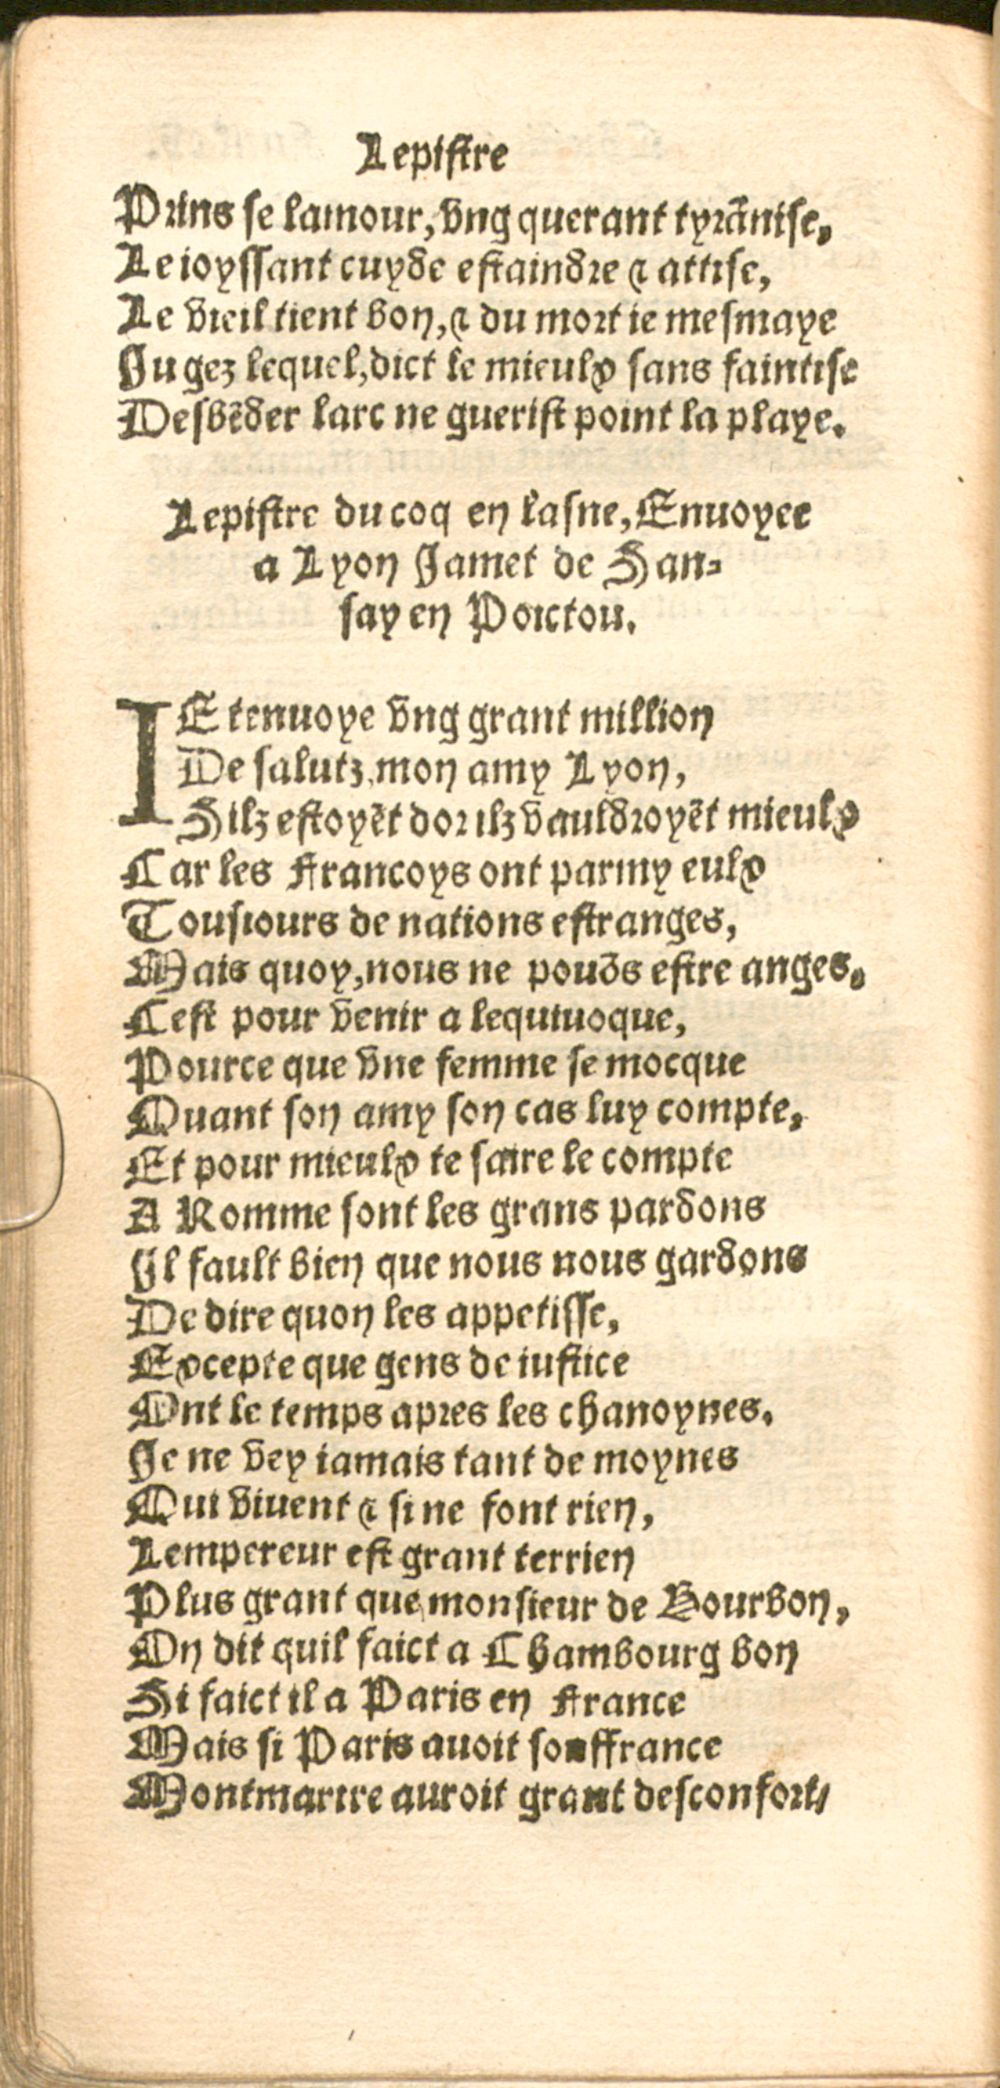 Lepistre
Prins se lamour, vng querant tyrãnise.
Le ioyssant cuyde estaindre & attise,
Le vieil tient bon, & du mort ie mesmaye
Jugez lequel, dict le mieulx sans faintise
Desbẽder larc ne guerist point la playe.
Lepistre du coq en lasne, Enuoyee
a Lyon Jamet de San-
say en Poictou.
IE tenuoye vng grant million
De salutz, mon amy Lyon,
Silz estoyẽt dor ilz vauldroyẽt mieulx
Car les Francoys ont parmy eulx
Tousiours de nations estranges,
Mais quoy, nous ne pouõs estre anges.
Cest pour venir a lequiuoque,
Pource que vne femme se mocque
Quant son amy son cas luy compte,
Et pour mieulx te faire le compte
A Romme sont les grans pardons
Il fault bien que nous nous gardons
De dire quon les appetisse,
Excepte que gens de iustice
Ont le temps apres les chanoynes.
Je ne vey iamais tant de moynes
Qui viuent & si ne font rien,
Lempereur est grant terrien
Plus grant que monsieur de Bourbon,
On dit quil faict a Chambourg bon
Si faict il a Paris en France
Mais si Paris auoit souffrance
Montmartre auroit grant desconfort,